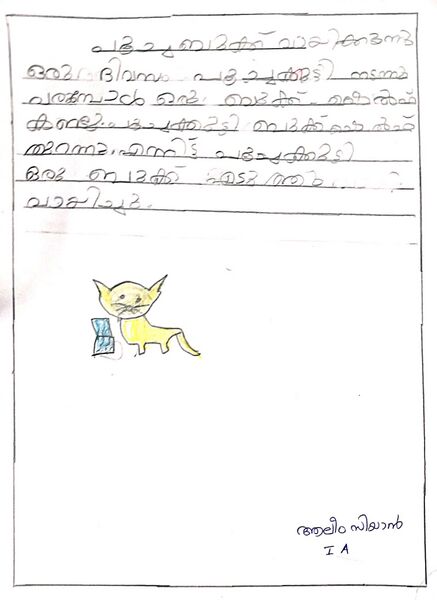 പൂച്ച ബുക്ക് വായിക്കുന്നു
ഒരു ദിവസം പൂച്ചക്കുട്ടി നടന്നു
വരുമ്പോൾ ഒരു ബുക്ക് ഷെൽഫ്
കണ്ടു. പൂച്ചക്കുട്ടി ബുക്ക് ഷെൽഫ്
തുറന്നു. എന്നിട്ട് പൂച്ചക്കുട്ടി
ഒരു ബുക്ക് എടുത്തു
വായിച്ചു.
ആലിം സിയാൻ
I A